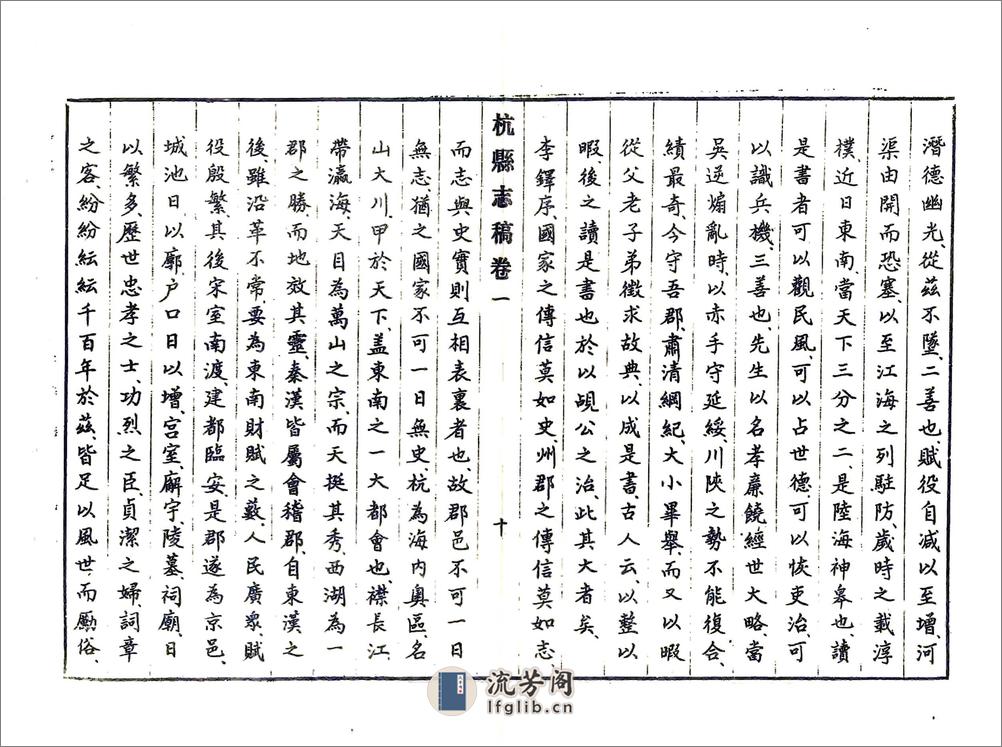 潛德幽光、從茲不墜、二善也、賦役自減以至增、河
渠由開而恐塞、以至江海之列駐防、歲時之載淳
樸、近日東南、當天下三分之二、是陸海神皋也、讀
是書者、可以觀民風、可以占世德、可以恢吏治、可
以識兵機、三善也、先生以名孝廉饒經世大略、當
吳逆煽亂時、以赤手守延綏、川陝之勢不能復合、
績最奇、今守吾郡、肅清綱紀、大小畢舉、而又以暇
從父老子弟徵求故典、以成是書、古人云、以整以
暇、後之讀是書也、於以覘公之治、此其大者矣、
李鐸序、國家之傳信莫如史、州郡之傳信莫如志、
杭縣志稿卷一
十
而志與史實則互相表裏者也、故郡邑不可一日
無志、猶之國家不可一日無史、杭為海內奧區、名
山大川、甲於天下、蓋東南之一大都會也、襟長江、
帶瀛海、天目為萬山之宗、而天挺其秀、西湖為一
郡之勝、而地效其靈、秦漢皆屬會稽郡、自東漢之
後、雖沿革不常、要為東南財賦之藪、人民廣眾、賦
役殷繁、其後宋室南渡、建都臨安、是郡遂為京邑、
城池日以廓、户口日以增、宮室、廨宇、陵墓、祠廟、日
以繁多、歷世忠孝之士、功烈之臣、貞潔之婦、詞章
之客、紛紛紜紜、千百年於茲、皆足以風世而勵俗、
流芳阁
lfglib.cn